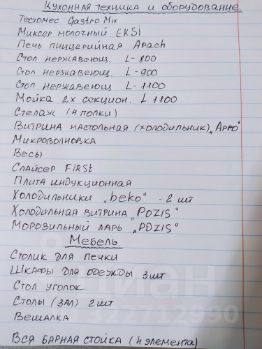 Кухонная техника и оборудование
Тестомес Gastro Mix
Миксер молочный EKSI
Печь пиццерийная Apach
Стол нержавеющ. L-800
Стол нержавеющ. L-900
Стол нержавеющ. L-1100
Мойка 2х секцион. L 1100
Стелаж (4 полки)
Витрина настольная (холодильник) „Арго"
Микроволновка
Весы
Слайсер FIRSt
Плита индукционная
Холодильники „beko" - 2 шт
Холодильная витрина „POZIS"
Морозильный ларь „POZIS"
Мебель
Столик для печки
Шкафы для одежды 3 шт
Стол уголок
Столы (зал) 2 шт
Вешалка
Вся барная стойка (4 элемента)